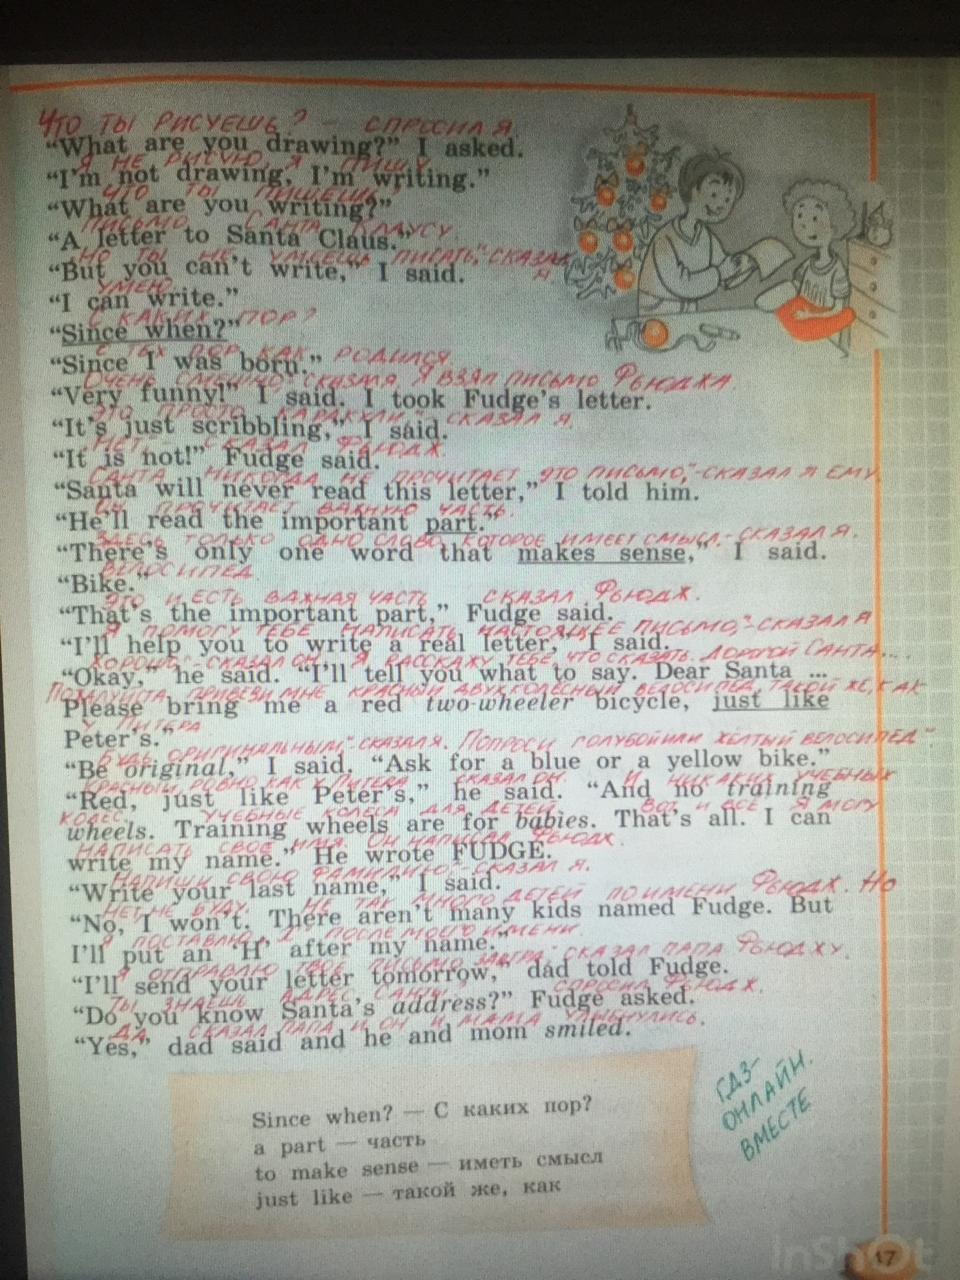 Что ты рисуешь? – спросил я.
“What are you drawing?” I asked.
Я не рисую, я пишу.
“I'm not drawing, I'm writing.”
Что ты пишешь
“What are you writing?”
Письмо Санта Клаусу.
“A letter to Santa Claus.”
Но ты не умеешь писать,"-сказал я.
“But you can't write,” I said.
умею
“I can write.”
С каких пор?
“Since when?”
С тех пор как родился
“Since I was born.”
Очень смешно"-сказал я. Я взял письмо Фьюджа.
“Very funny!” I said. I took Fudge's letter.
Это просто каракули"-сказал я.
“It's just scribbling,” I said.
Нет – сказал Фьюдж.
“It is not!” Fudge said.
Санта никогда не прочитает это письмо,"-сказал я ему
“Santa will never read this letter,” I told him.
Он прочитает важную часть.
“He'll read the important part.”
Здесь только одно слово которое имеет смысл,-сказал я.
“There's only one word that makes sense,” I said.
Велосипед
“Bike.”
Это и есть важная часть сказал Фьюдж.
“That's the important part,” Fudge said.
Я помогу тебе написать настоящее письмо,"-сказал я
“I'll help you to write a real letter,” I said.
Хорошо"-сказал он. Я расскажу тебе, что сказать. Дорогой Санта...
“Okay,” he said. “I'll tell you what to say. Dear Santa ...
Пожалуйста привези мне красный двухколёсный велосипед такой же, как
Please bring me a red two-wheeler bicycle, just like
у Питера
Peter's.”
Будь оригинальным"-сказал я. Попроси голубой или жёлтый велосипед"
“Be original,” I said. “Ask for a blue or a yellow bike.”
Красный, ровно как у Питера сказал он. И никаких учебных
“Red, just like Peter's,” he said. “And no training
колес. Учебные колеса для детей. Вот и всё Я могу
wheels. Training wheels are for babies. That's all. I can
написать своё имя. Он написал Фьюдж.
write my name.” He wrote FUDGE.
Напиши свою фамилию"-сказал я.
“Write your last name,” I said.
Нет не буду. Не так много детей по имени Фьюдж. Но
“No, I won't. There aren't many kids named Fudge. But
я поставлю после моего имени.
I'll put an ‘H’ after my name.”
Я отправлю твоё письмо завтра,"сказал папа Фьюджу.
“I'll send your letter tomorrow,” dad told Fudge.
Ты знаешь адрес Санты? спросил Фьюдж.
“Do you know Santa's address?” Fudge asked.
Да сказал папа и он и мама улыбнулись.
“Yes,” dad said and he and mom smiled.
Since when? — С каких пор?
a part — часть
to make sense — иметь смысл
just like — такой же, как
ГДЗ-
ОНЛАЙН.
ВМЕСТЕ
InShOt
17